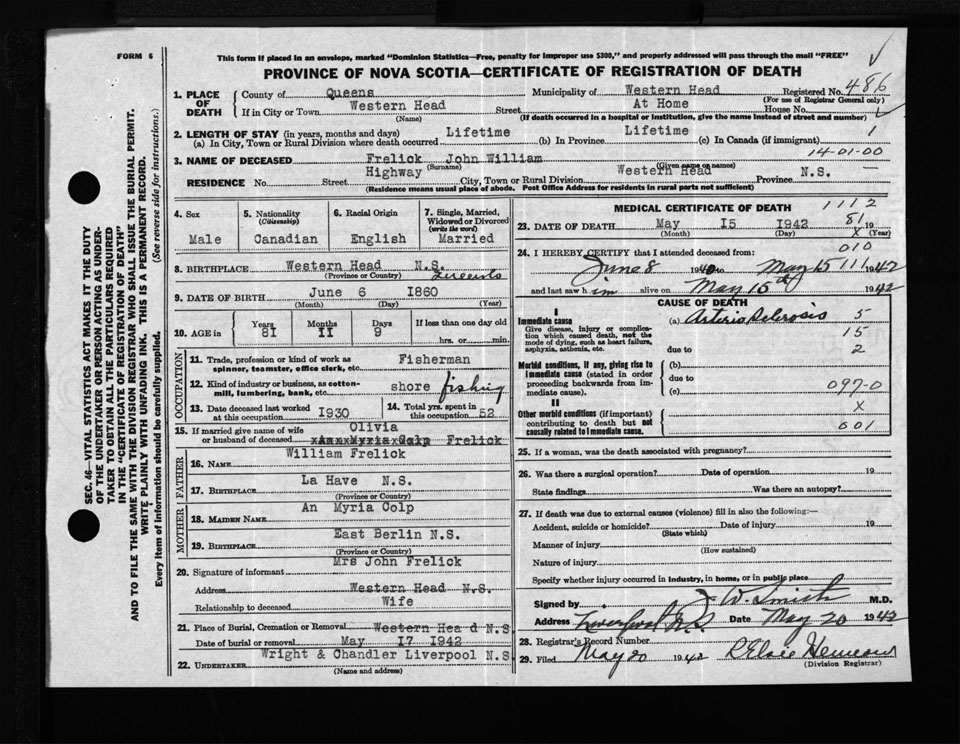 FORM 6
This form if placed in an envelope, marked "Dominion Statistics—Free, penalty for improper use $300," and properly addressed will pass through the mail "FREE"
PROVINCE OF NOVA SCOTIA—CERTIFICATE OF REGISTRATION OF DEATH
SEC. 46—VITAL STATISTICS ACT MAKES IT THE DUTY
OF THE UNDERTAKER OR PERSON ACTING AS UNDER-
TAKER TO OBTAIN ALL THE PARTICULARS REQUIRED
IN THE "CERTIFICATE OF REGISTRATION OF DEATH"
AND TO FILE THE SAME WITH THE DIVISION REGISTRAR WHO SHALL ISSUE THE BURIAL PERMIT.
WRITE PLAINLY WITH UNFADING INK. THIS IS A PERMANENT RECORD.
Every item of information should be carefully supplied. (See reverse side for instructions.)
1. PLACE OF DEATH County of Queens Municipality of Western Head Registered No. 486
(For use of Registrar General only)
If in City or Town Western Head Street At Home House No.
(Name) (If death occurred in a hospital or institution, give the name instead of street and number)
2. LENGTH OF STAY (in years, months and days) 1
(a) In City, Town or Rural Division where death occurred Lifetime (b) In Province Lifetime (c) In Canada (if immigrant)
14-01-00
3. NAME OF DECEASED Frelick John William
(Surname) (Given name or names)
RESIDENCE No. Street Highway City, Town or Rural Division Western Head Province N.S.
(Residence means usual place of abode. Post Office Address for residents in rural parts not sufficient)
4. Sex Male
5. Nationality (Citizenship) Canadian
6. Racial Origin English
7. Single, Married, Widowed or Divorced (write the word) Married
8. BIRTHPLACE Western Head N.S. Queens
(Province or Country)
9. DATE OF BIRTH June 6 1860
(Month) (Day) (Year)
10. AGE in Years 81 Months 11 Days 9 If less than one day old
hrs. or min.
OCCUPATION
11. Trade, profession or kind of work as spinner, teamster, office clerk, etc. Fisherman
12. Kind of industry or business, as cotton-mill, lumbering, bank, etc. shore fishing
13. Date deceased last worked at this occupation 1930
14. Total yrs. spent in this occupation 52
15. If married give name of wife or husband of deceased Olivia
xAnnxMyriaxColp Frelick
FATHER
16. NAME William Frelick
17. BIRTHPLACE La Have N.S.
(Province or Country)
MOTHER
18. MAIDEN NAME An Myria Colp
19. BIRTHPLACE East Berlin N.S.
(Province or Country)
20. Signature of informant Mrs John Frelick
Address Western Head N.S.
Relationship to deceased Wife
21. Place of Burial, Cremation or Removal Western Head N.S
Date of burial or removal May 17 1942
22. UNDERTAKER Wright & Chandler Liverpool N.S
(Name and address)
MEDICAL CERTIFICATE OF DEATH 1112
81
23. DATE OF DEATH May 15 1942 19
(Month) (Day) X (Year)
010
24. I HEREBY CERTIFY that I attended deceased from:
June 8 1940 to May 15 111 1942
and last saw h im alive on May 15th 1942
CAUSE OF DEATH
I
Immediate cause (a) Arterio Sclerosis 5
Give disease, injury or complication which caused death, not the mode of dying, such as heart failure, asphyxia, asthenia, etc. 15
due to 2
Morbid conditions, if any, giving rise to Immediate cause (stated in order proceeding backwards from immediate cause). (b)
due to
(c) 097-0
II X
Other morbid conditions (if important) contributing to death but not causally related to immediate cause. 001
25. If a woman, was the death associated with pregnancy?
26. Was there a surgical operation? Date of operation 19
State findings Was there an autopsy?
27. If death was due to external causes (violence) fill in also the following:—
Accident, suicide or homicide? Date of injury 19
(State which)
Manner of injury
(How sustained)
Nature of injury
Specify whether injury occurred in industry, in home, or in public place
Signed by J W. Smith M.D.
Address Liverpool N.S Date May 20 1942
28. Registrar's Record Number
29. Filed May 20 1942
(Division Registrar)